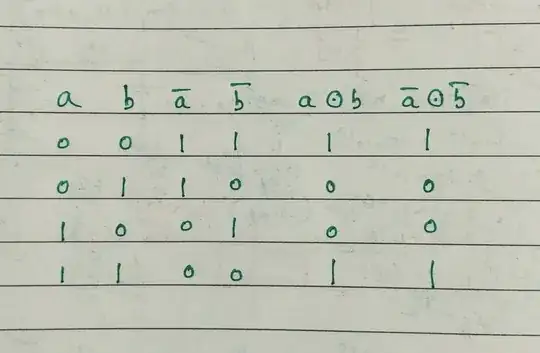 a b a̅ b̅ a ⊙ b a̅ ⊙ b̅
0 0 1 1 1 1
0 1 1 0 0 0
1 0 0 1 0 0
1 1 0 0 1 1